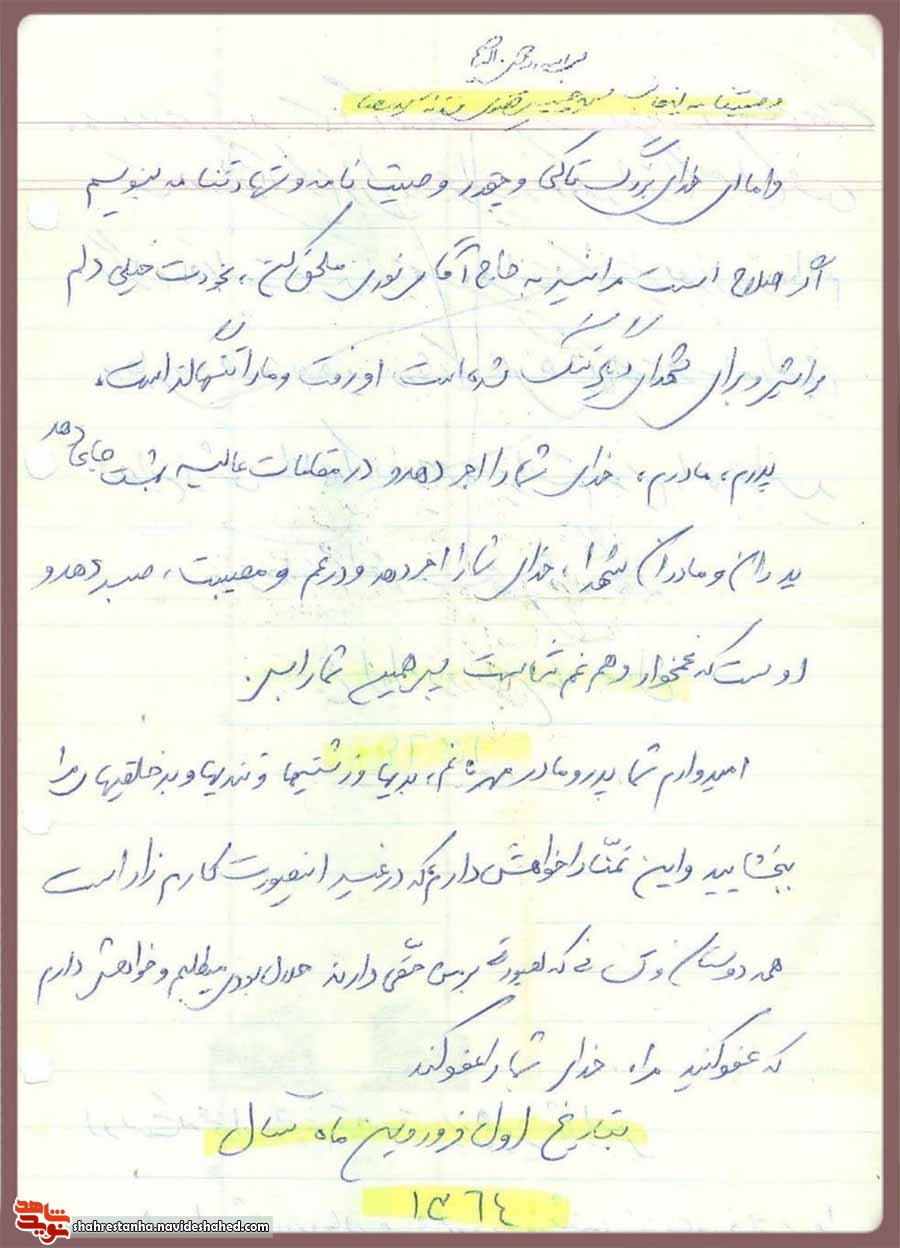 بسم الله الرحمن الرحیم
وصیتنامه اینجانب سید فرزند سید رضا
و اما ای خدای بزرگ تا کی و چقدر وصیت نامه و شهادتنامه بنویسم
اگر صلاح است مرا نیز به حاج آقای نوری ملحق کن، بخودت خیلی دلم
برایش و برای شهدای دیگر تنگ شده است او رفت و ما را تنها گذاست.
پدرم، مادرم، خدای شما را اجر دهد و در مقامات عالیه بهشت جای دهد
پدران و مادران شهدا، خدای شما را اجر دهد و در غم و مصیبت، صبر دهد و
اوست که غمخوار و هم غم شماست پس همین شما را بس.
امیدوارم شما پدر و مادر مهربانم، بدیها و زشتیها و تندیها و بدخلقیهای مرا
ببخشایید و این تمنّا را خواهش دارم که در غیر اینصورت کارم زار است
همه دوستان و کسانی که بصورتی بر من حقّی دارند حلال بودی میطلبم و خواهش دارم
که عفو کنید مرا، خدای شما را عفو کند
بتاریخ اول فروردین ماه سال
۱۳۶۴
نوید شاهد
shahrestanha.navideshahed.com